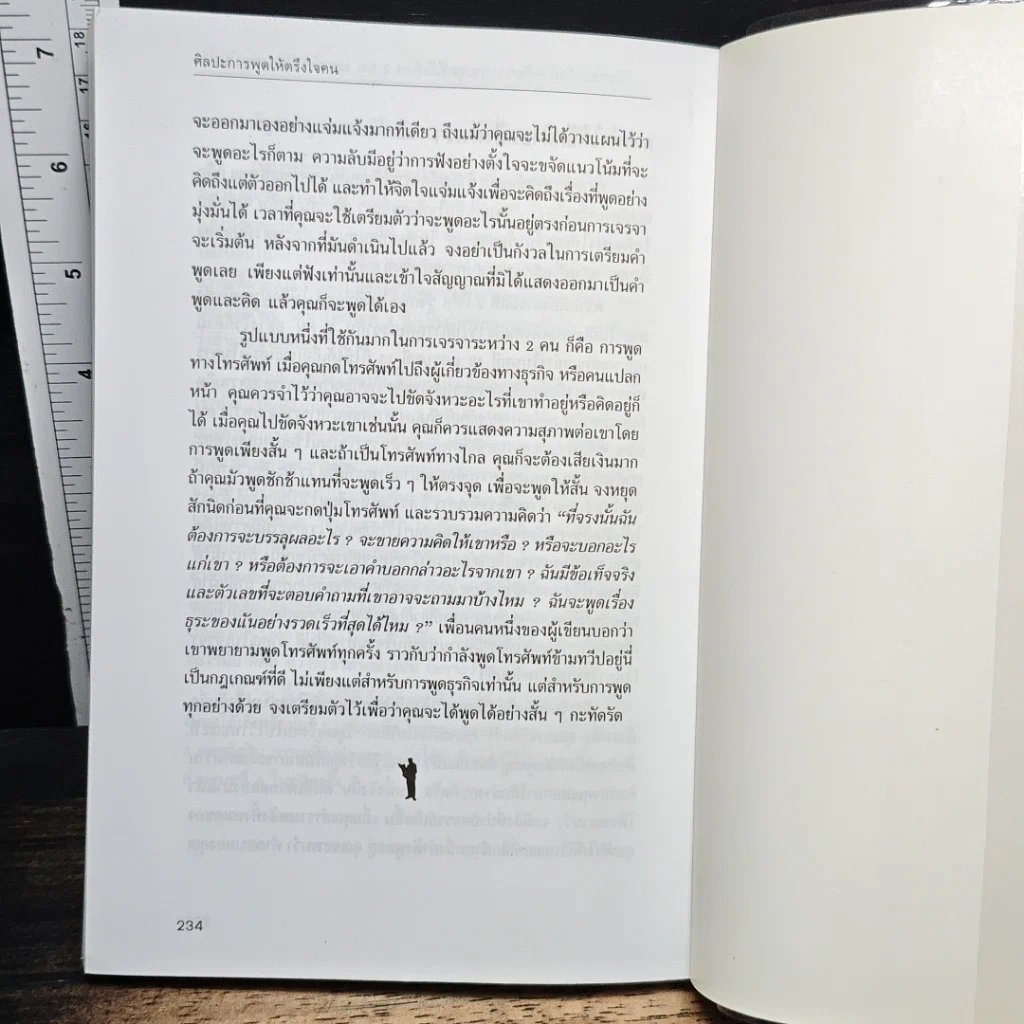 ศิลปะการพูดให้ตรึงใจคน
จะออกมาเองอย่างแจ่มแจ้งมากทีเดียว ถึงแม้ว่าคุณจะไม่ได้วางแผนไว้ว่า
จะพูดอะไรก็ตาม ความลับมีอยู่ว่าการฟังอย่างตั้งใจจะขจัดแนวโน้มที่จะ
คิดถึงแต่ตัวออกไปได้ และทำให้จิตใจแจ่มแจ้งเพื่อจะคิดถึงเรื่องที่พูดอย่าง
มุ่งมั่นได้ เวลาที่คุณจะใช้เตรียมตัวว่าจะพูดอะไรนั้นอยู่ตรงก่อนการเจรจา
จะเริ่มต้น หลังจากที่มันดำเนินไปแล้ว จงอย่าเป็นกังวลในการเตรียมคำ
พูดเลย เพียงแต่ฟังเท่านั้นและเข้าใจสัญญาณที่มิได้แสดงออกมาเป็นคำ
พูดและคิด แล้วคุณก็จะพูดได้เอง
รูปแบบหนึ่งที่ใช้กันมากในการเจรจาระหว่าง 2 คน ก็คือ การพูด
ทางโทรศัพท์ เมื่อคุณกดโทรศัพท์ไปถึงผู้เกี่ยวข้องทางธุรกิจ หรือคนแปลก
หน้า คุณควรจำไว้ว่าคุณอาจจะไปขัดจังหวะอะไรที่เขาทำอยู่หรือคิดอยู่ก็
ได้ เมื่อคุณไปขัดจังหวะเขาเช่นนั้น คุณก็ควรแสดงความสุภาพต่อเขาโดย
การพูดเพียงสั้น ๆ และถ้าเป็นโทรศัพท์ทางไกล คุณก็จะต้องเสียเงินมาก
ถ้าคุณมัวพูดชักช้าแทนที่จะพูดเร็ว ๆ ให้ตรงจุด เพื่อจะพูดให้สั้น จงหยุด
สักนิดก่อนที่คุณจะกดปุ่มโทรศัพท์ และรวบรวมความคิดว่า “ที่จริงนั้นฉัน
ต้องการจะบรรลุผลอะไร ? จะขายความคิดให้เขาหรือ ? หรือจะบอกอะไร
แก่เขา ? หรือต้องการจะเอาคำบอกกล่าวอะไรจากเขา ? ฉันมีข้อเท็จจริง
และตัวเลขที่จะตอบคำถามที่เขาอาจจะถามมาบ้างไหม ? ฉันจะพูดเรื่อง
ธุระของแันอย่างรวดเร็วที่สุดได้ไหม ?” เพื่อนคนหนึ่งของผู้เขียนบอกว่า
เขาพยายามพูดโทรศัพท์ทุกครั้ง ราวกับว่ากำลังพูดโทรศัพท์ข้ามทวีปอยู่นี่
เป็นกฎเกณฑ์ที่ดี ไม่เพียงแต่สำหรับการพูดธุรกิจเท่านั้น แต่สำหรับการพูด
ทุกอย่างด้วย จงเตรียมตัวไว้เพื่อว่าคุณจะได้พูดได้อย่างสั้น ๆ กะทัดรัด
234
7
6
5
4
18
17